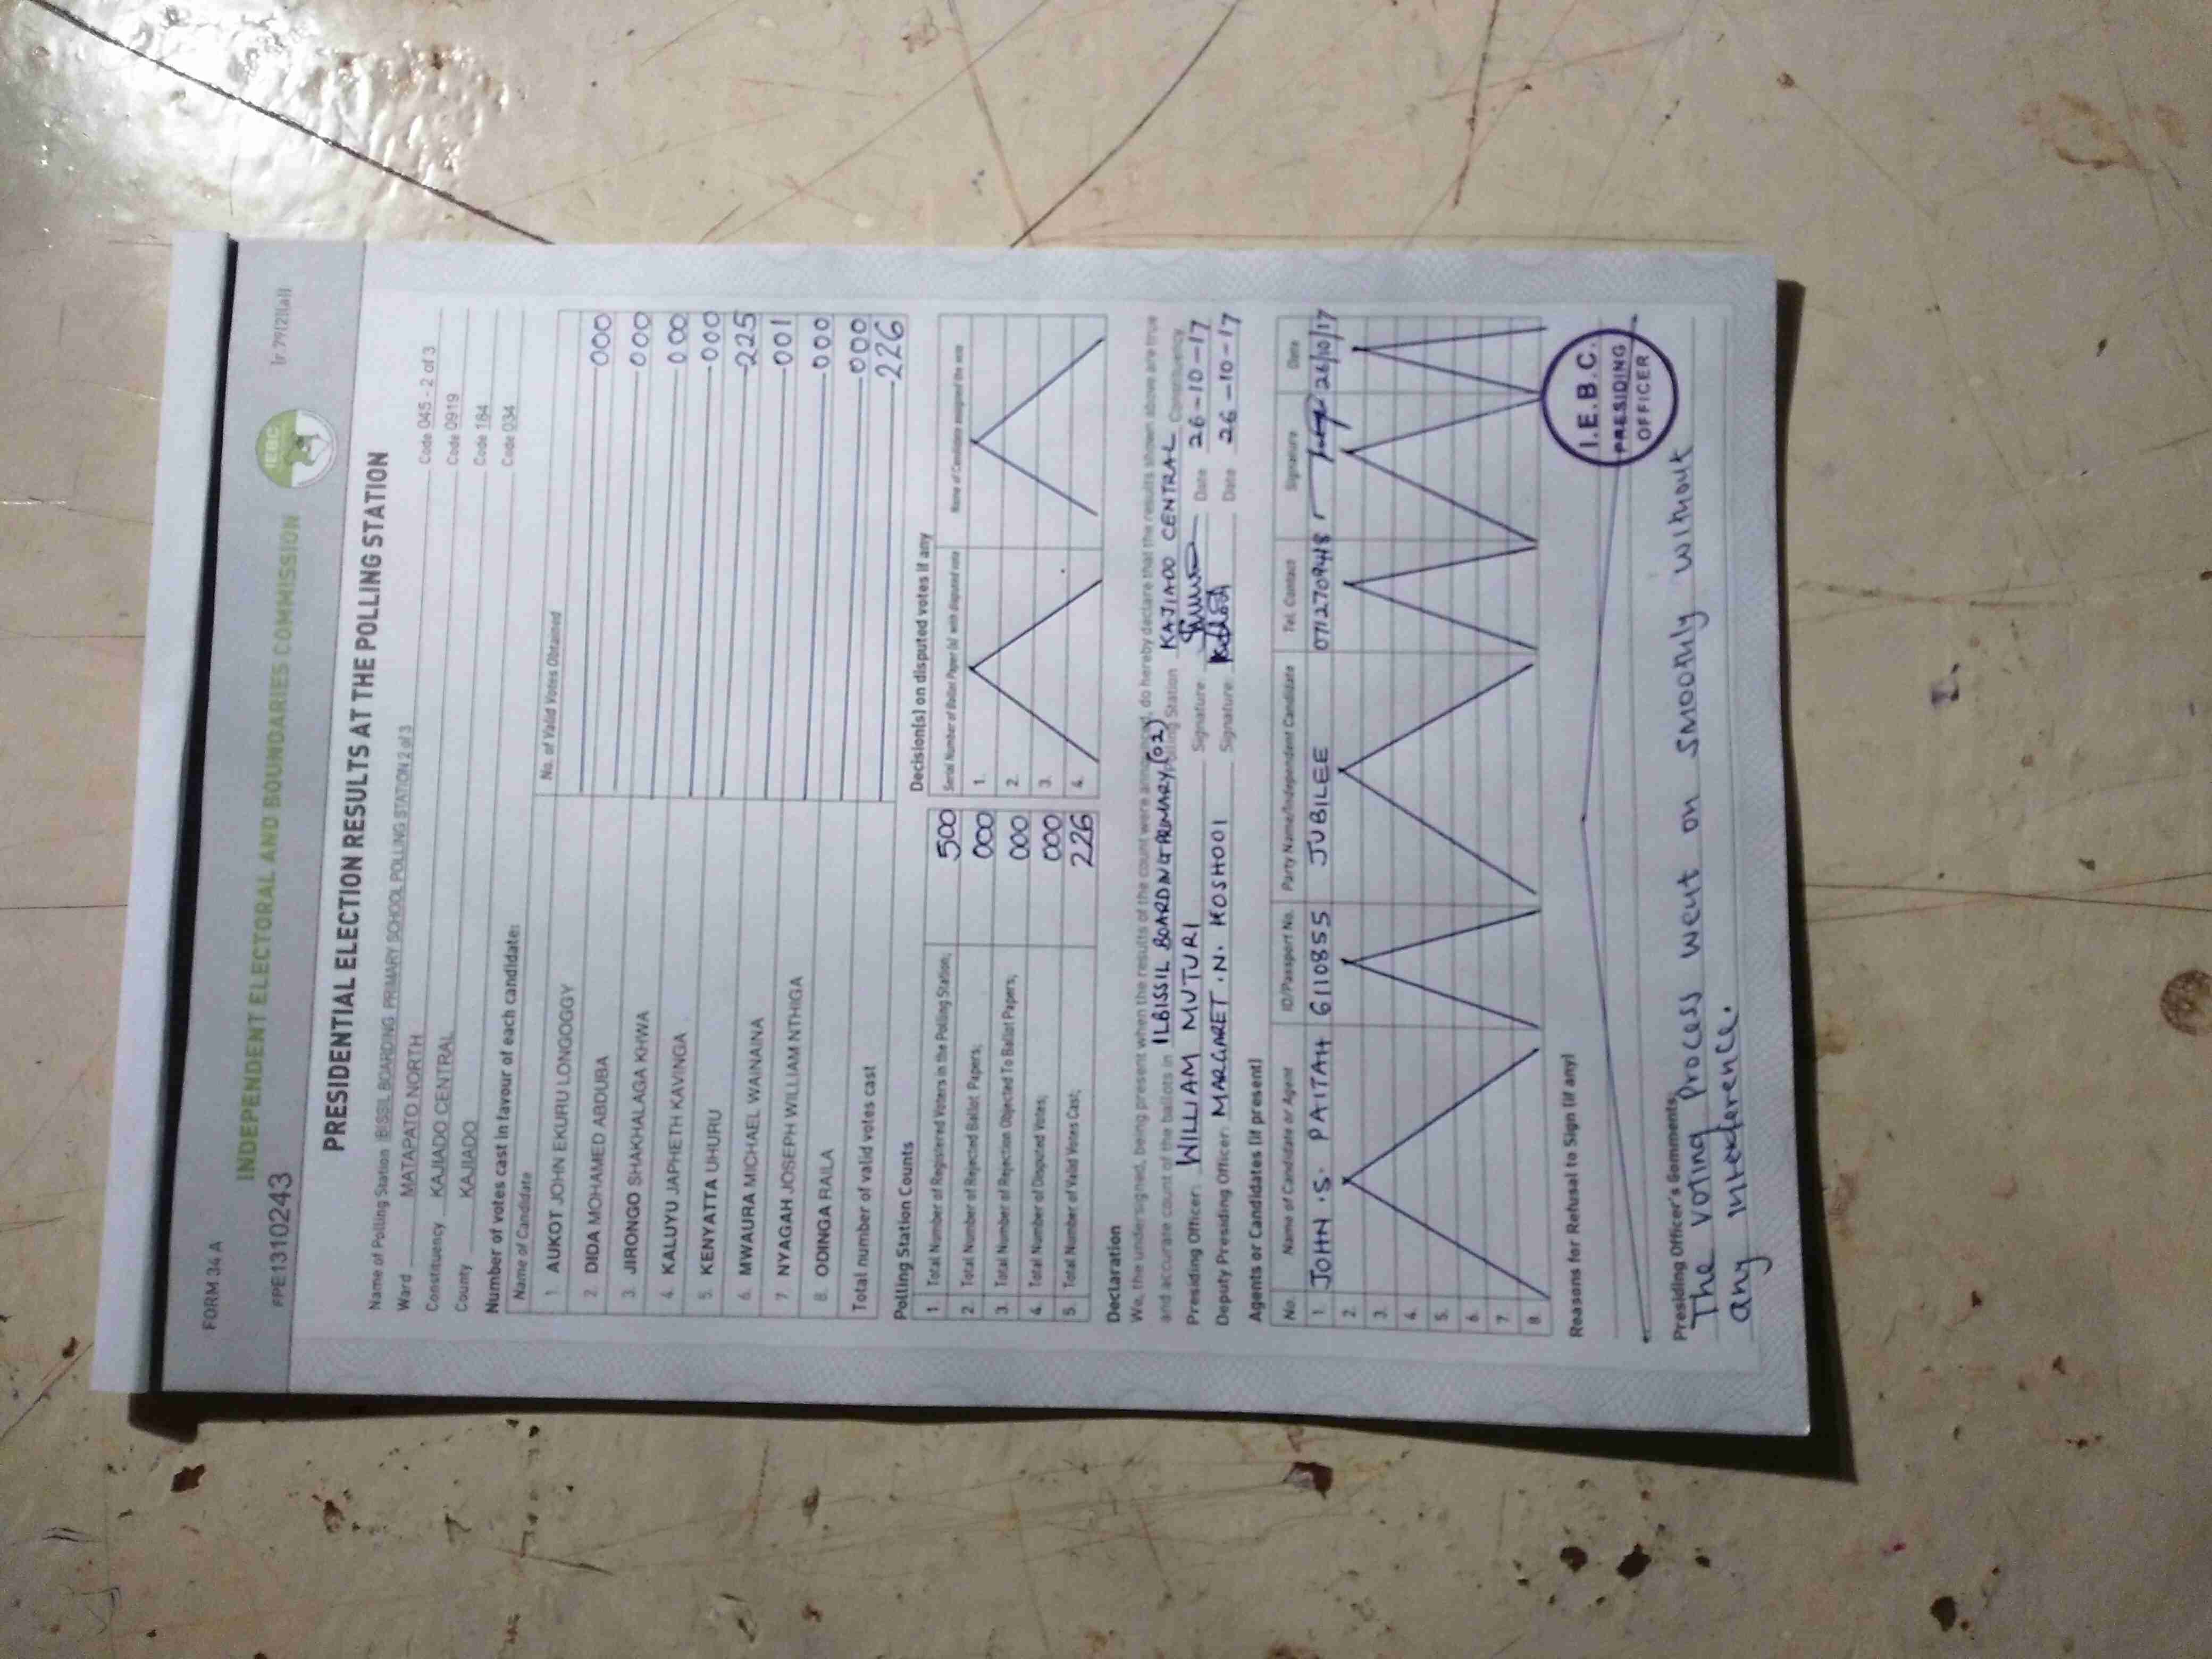 FORM 34 A
Ir.79(2)(a)
INDEPENDENT ELECTORAL AND BOUNDARIES COMMISSION
IEBC
FPE1310243
PRESIDENTIAL ELECTION RESULTS AT THE POLLING STATION
Name of Polling Station IBISSIL BOARDING PRIMARY SCHOOL POLLING STATION 2 of 3 Code 045 - 2 of 3
Ward MATAPATO NORTH Code 0919
Constituency KAJIADO CENTRAL Code 184
County KAJIADO Code 034
Number of votes cast in favour of each candidate:
Name of Candidate No. of Valid Votes Obtained
1. AUKOT JOHN EKURU LONGOGGY 000
2. DIDA MOHAMED ABDUBA 000
3. JIRONGO SHAKHALAGA KHWA 000
4. KALUYU JAPHETH KAVINGA 000
5. KENYATTA UHURU 225
6. MWAURA MICHAEL WAINAINA 001
7 NYAGAH JOSEPH WILLIAM NTHIGA 000
8. ODINGA RAILA 000
Total number of valid votes cast 226
Polling Station Counts Decision(s) on disputed votes if any
1. Total Number of Registered Voters in the Polling Station; 500
2. Total Number of Rejected Ballot Papers; 000
3. Total Number of Rejection Objected To Ballot Papers; 000
4. Total Number of Disputed Votes; 000
5. Total Number of Valid Votes Cast; 226
Serial Number of Ballot Paper (s) with disputed vote Name of Candidate assigned the vote
1.
2.
3.
4.
Declaration
We, the undersigned, being present when the results of the count were announced, do hereby declare that the results shown above are true
and accurate count of the ballots in ILBISSIL BOARDING PRIMARY (02) Polling Station KAJIADO CENTRAL Constituency
Presiding Officer: WILLIAM MUTURI Signature: Date 26-10-17
Deputy Presiding Officer: MARGARET .N. KOSHOOI Signature: Date 26-10-17
Agents or Candidates (if present)
No. Name of Candidate or Agent ID/Passport No. Party Name/Independent Candidate Tel. Contact Signature Date
1. JOHN .S. PAITAH 6110855 JUBILEE 0712709418 26/10/17
2.
3.
4.
5.
6.
7.
8.
Reasons for Refusal to Sign (if any)
I.E.B.C.
PRESIDING
OFFICER
Presiding Officer's Comments:
The voting process went on smoothly without
any interference.